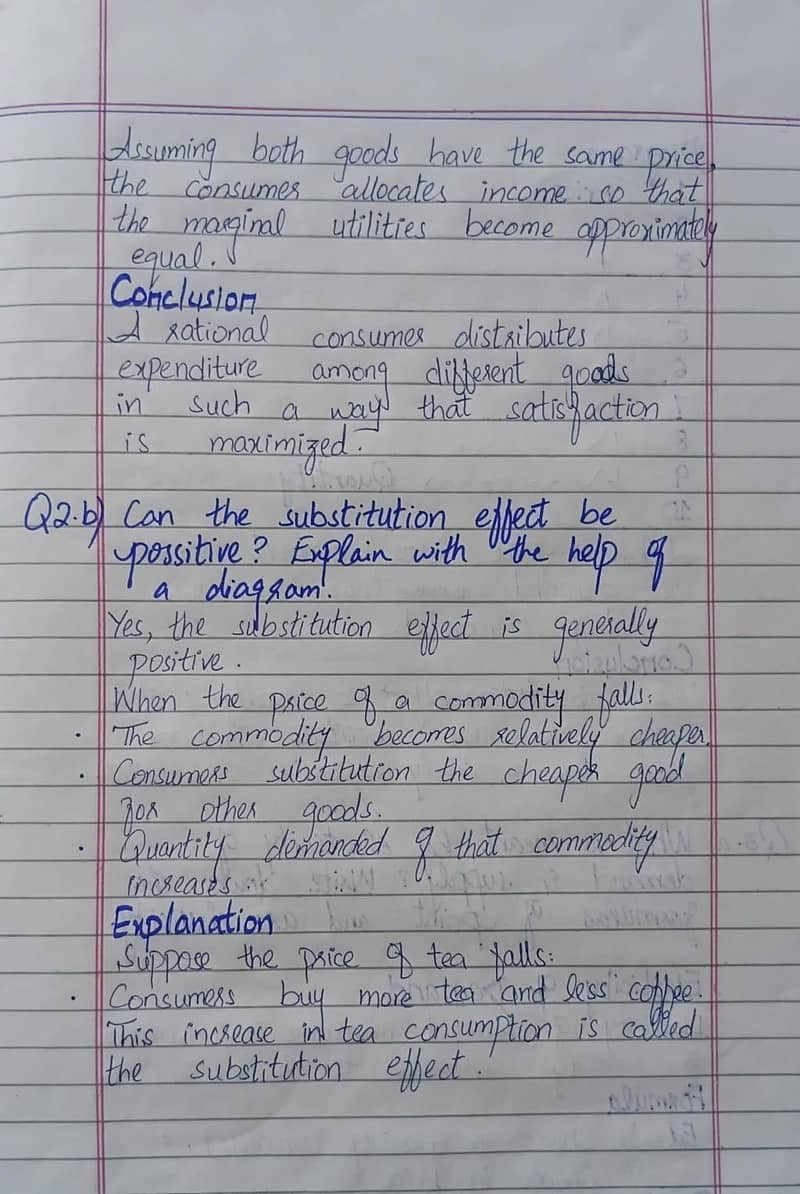 Assuming both goods have the same price,
the consumer allocates income so that
the marginal utilities become approximately
equal.
Conclusion
A rational consumer distributes
expenditure among different goods
in such a way that satisfaction
is maximized.
Q2.b) Can the substitution effect be
possitive? Explain with the help of
a diagram.
Yes, the substitution effect is generally
positive.
When the price of a commodity falls:
• The commodity becomes relatively cheaper.
• Consumers substitution the cheaper good
for other goods.
• Quantity demanded of that commodity
increases.
Explanation
Suppose the price of tea falls:
• Consumers buy more tea and less coffee.
This increase in tea consumption is called
the substitution effect.